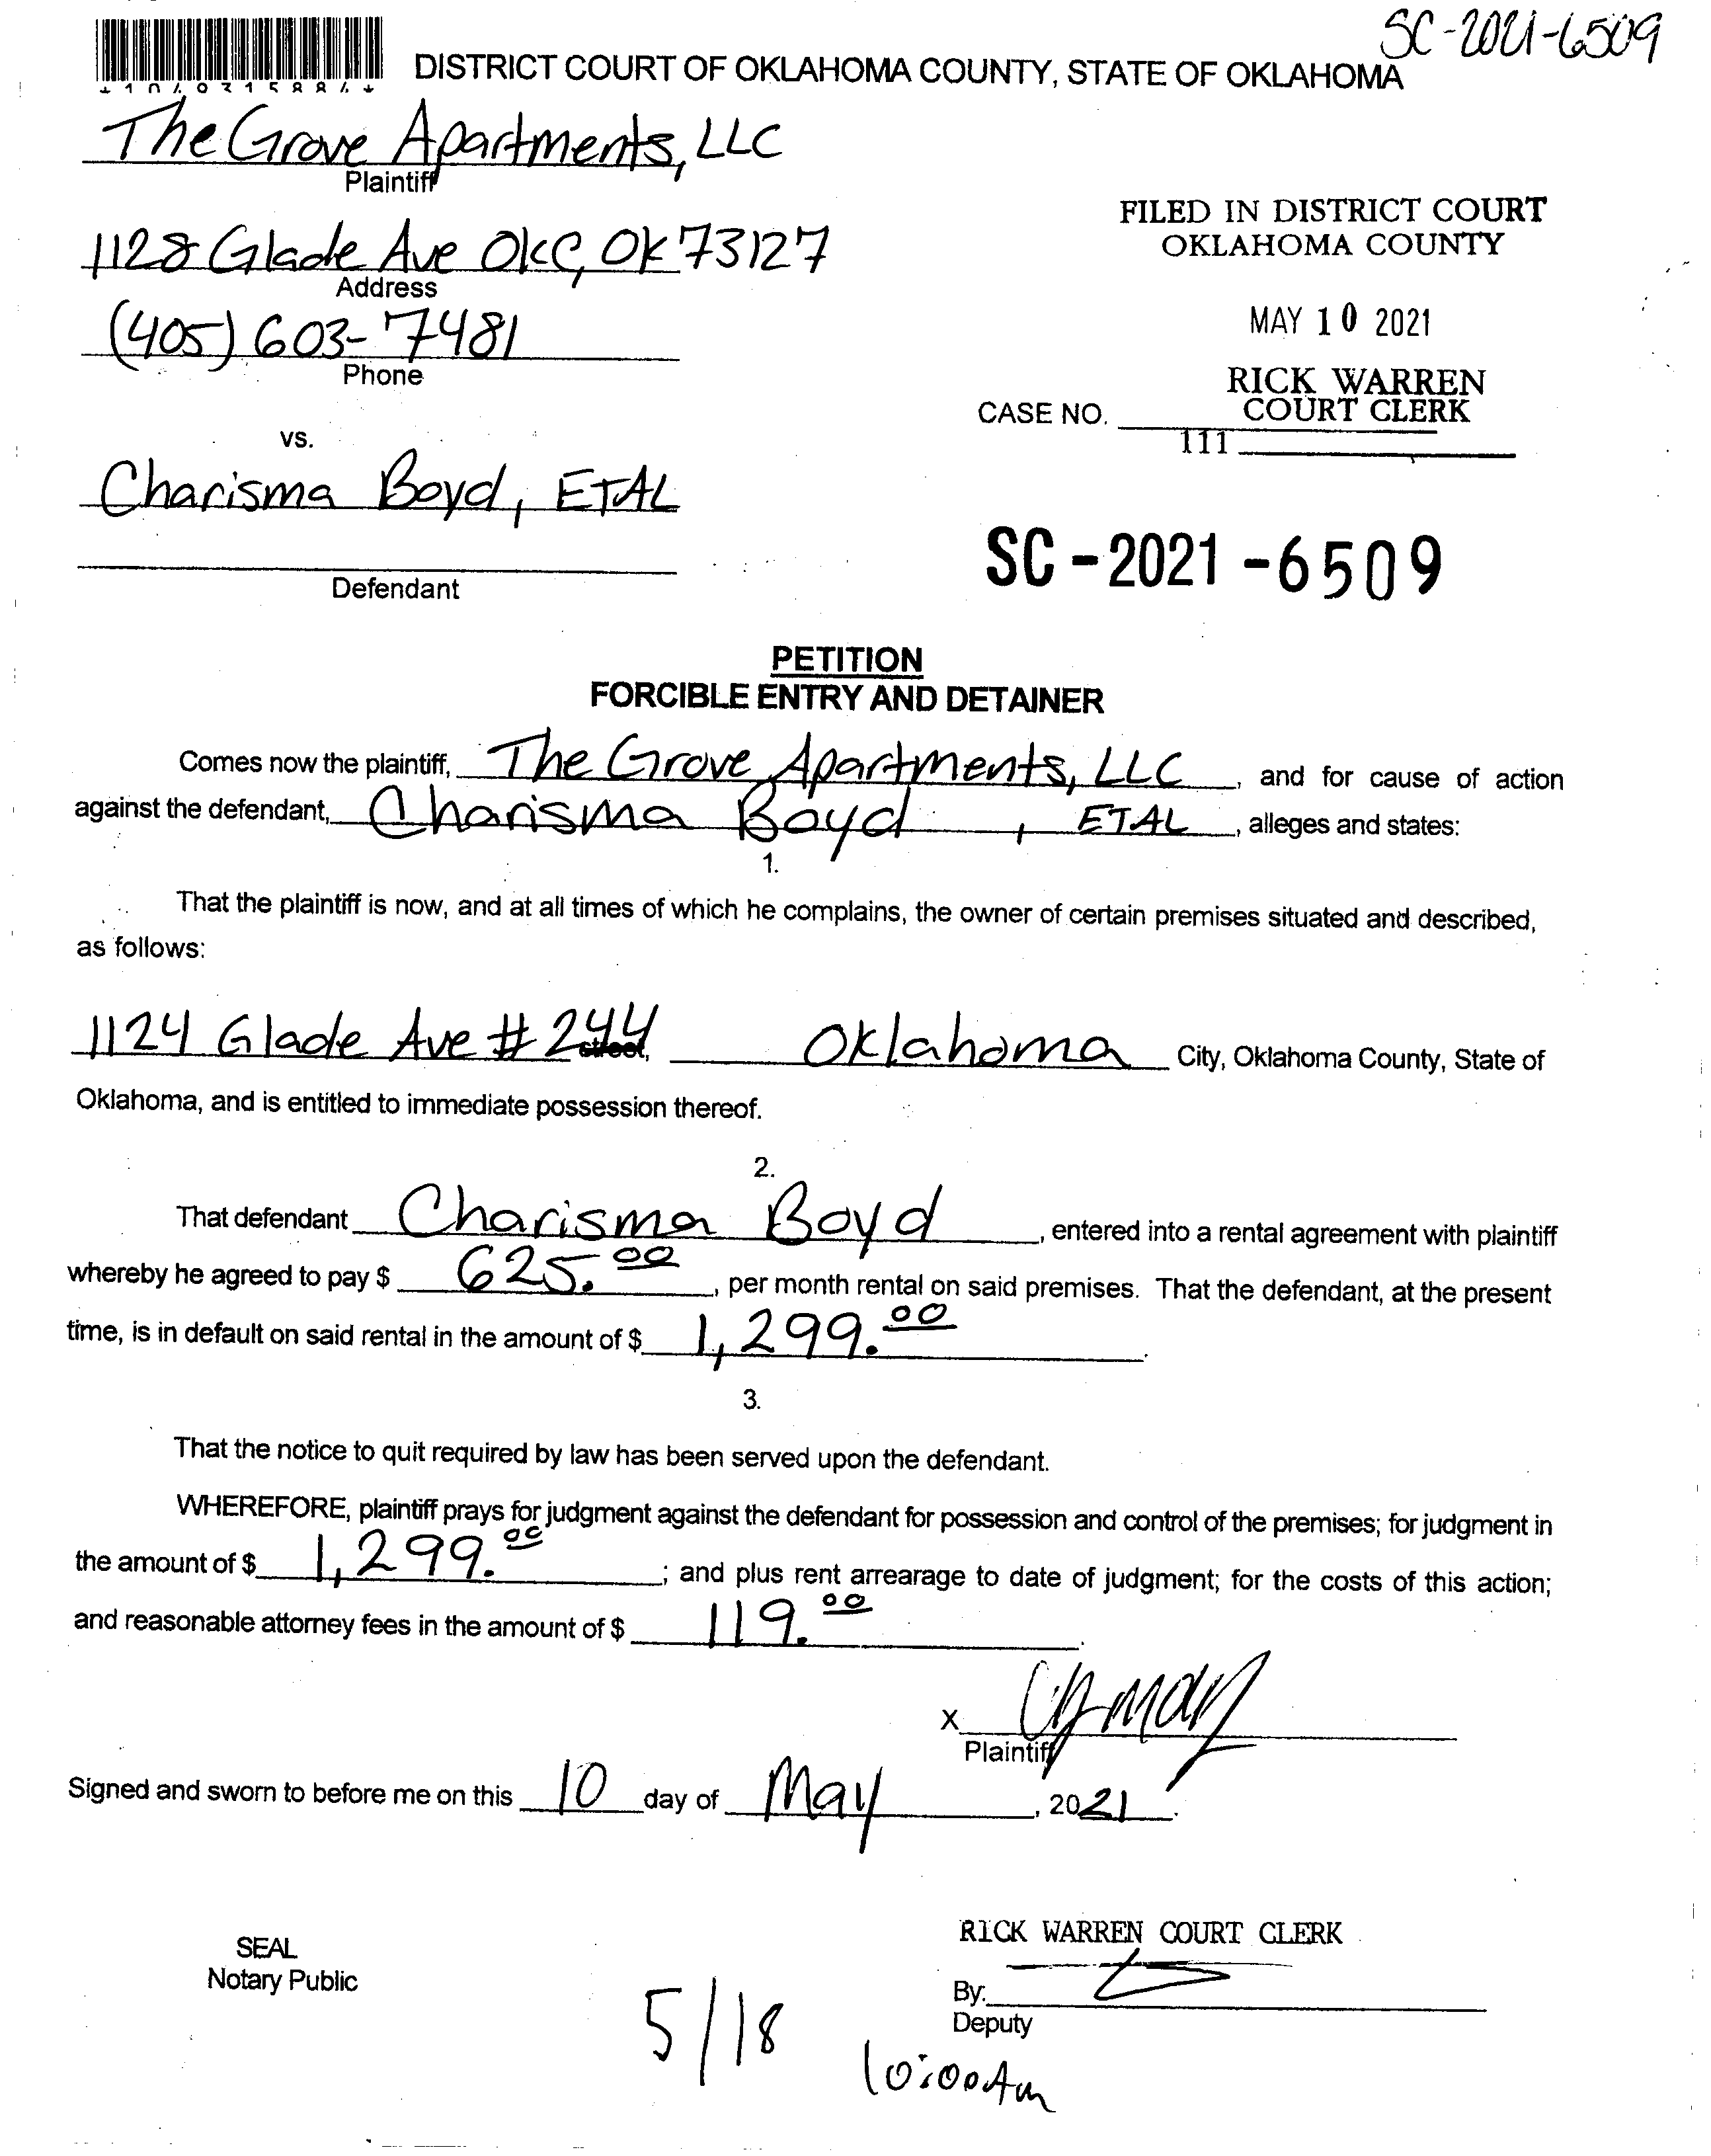 SC-2021-6509
DISTRICT COURT OF OKLAHOMA COUNTY, STATE OF OKLAHOMA
The Grove Apartments, LLC
Plaintiff
1128 Glade Ave OKC, OK 73127
Address
(405) 603-7481
Phone
FILED IN DISTRICT COURT
OKLAHOMA COUNTY
MAY 10 2021
RICK WARREN
COURT CLERK
CASE NO.
111
vs.
Charisma Boyd, ETAL
Defendant
SC-2021-6509
PETITION
FORCIBLE ENTRY AND DETAINER
Comes now the plaintiff, The Grove Apartments, LLC, and for cause of action
against the defendant, Charisma Boyd, ETAL, alleges and states:
1.
That the plaintiff is now, and at all times of which he complains, the owner of certain premises situated and described,
as follows:
1124 Glade Ave # 244 street, Oklahoma City, Oklahoma County, State of
Oklahoma, and is entitled to immediate possession thereof.
2.
That defendant Charisma Boyd, entered into a rental agreement with plaintiff
whereby he agreed to pay $ 625.00, per month rental on said premises. That the defendant, at the present
time, is in default on said rental in the amount of $ 1,299.00.
3.
That the notice to quit required by law has been served upon the defendant.
WHEREFORE, plaintiff prays for judgment against the defendant for possession and control of the premises; for judgment in
the amount of $ 1,299.00; and plus rent arrearage to date of judgment; for the costs of this action;
and reasonable attorney fees in the amount of $ 119.00.
X
Plaintiff
Signed and sworn to before me on this 10 day of May, 2021.
RICK WARREN COURT CLERK
SEAL
Notary Public
By:
Deputy
5/18
10:00Am